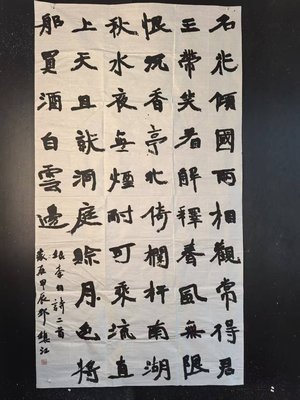 名花傾國兩相觀常得君
王帶笑看解釋春風無限
恨沉香亭北倚欄杆南湖
秋水夜無煙耐可乘流直
上天且就洞庭賒月色將
船買酒白雲邊
錄李白詩二首
歲在甲辰江